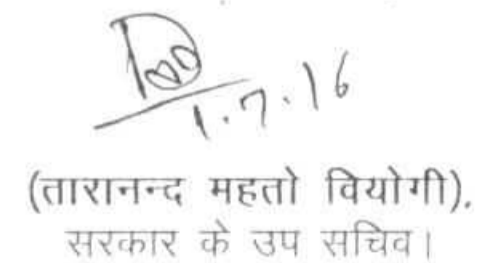 1.7.16
(तारानन्द महतो वियोगी).
सरकार के उप सचिव।